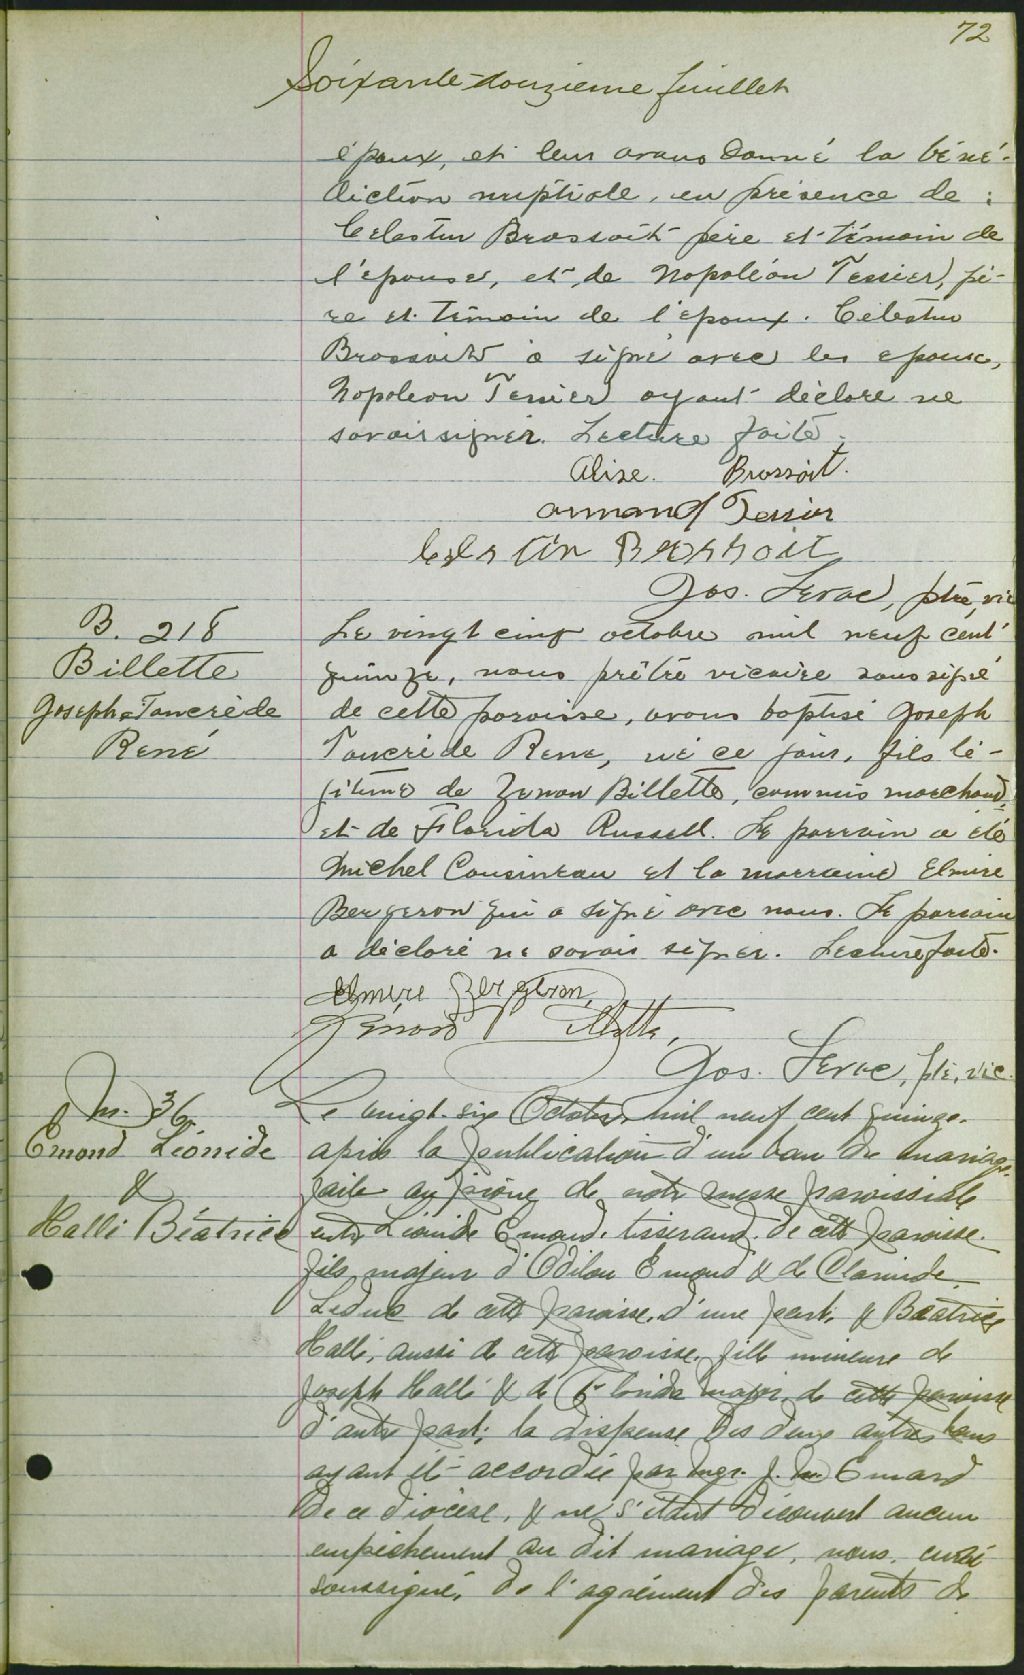 72
Soixante-douzieme feuillet
époux, et leur avons donné la béné-
diction nuptiale, en présence de :
Celestin Brossoit père et témoin de
l'épouse, et de Napoléon Tessier, pè-
re et témoin de l'époux. Célestin
Brossoit a signé avec les epoux,
Napoleon Tessier ayant déclaré ne
savoir signer. Lecture faite.
Alise. Brossoit.
Armand Tessier
Celestin Brossoit
Jos. Leroc, ptre, vic
B. 218
Billette
Joseph Tancrède
René
Le vingt cinq octobre mil neuf cent
quinze, nous prêtre vicaire soussigné
de cette paroisse, avons baptisé Joseph
Tancrède Rene, né ce jour, fils lé-
gitime de Zenon Billette, commis marchand,
et de Florida Russell. Le parrain a été
Michel Cousineau et la marraine Elmire
Bergeron qui a signé avec nous. Le parrain
a déclaré ne savoir signer. Lecture faite.
Elmire Bergeron,
Zénon Billette,
Jos. Leroc, ptre, vic.
M. 36
Emond Léonide
&
Hallé Béatrice
Le vingt-six Octobre mil neuf cent quinze.
après la publication d'un ban de mariage
faite au prône de notre messe paroissiale
entre Léonide Emond, tisserand, de cette paroisse.
fils majeur d'Odilon Emond & de Clarinde
Leduc de cette paroisse, d'une part, & Béatrice
Hallé, aussi de cette paroisse, fille mineure de
Joseph Hallé & de Florida Major, de cette paroisse
d'autre part; la dispense des deux autres bans
ayant été accordée par Mgr. J. M. Emard
de ce diocèse, & ne s'étant découvert aucun
empêchement au dit mariage, nous, curé
soussigné, de l'agrément des parents de